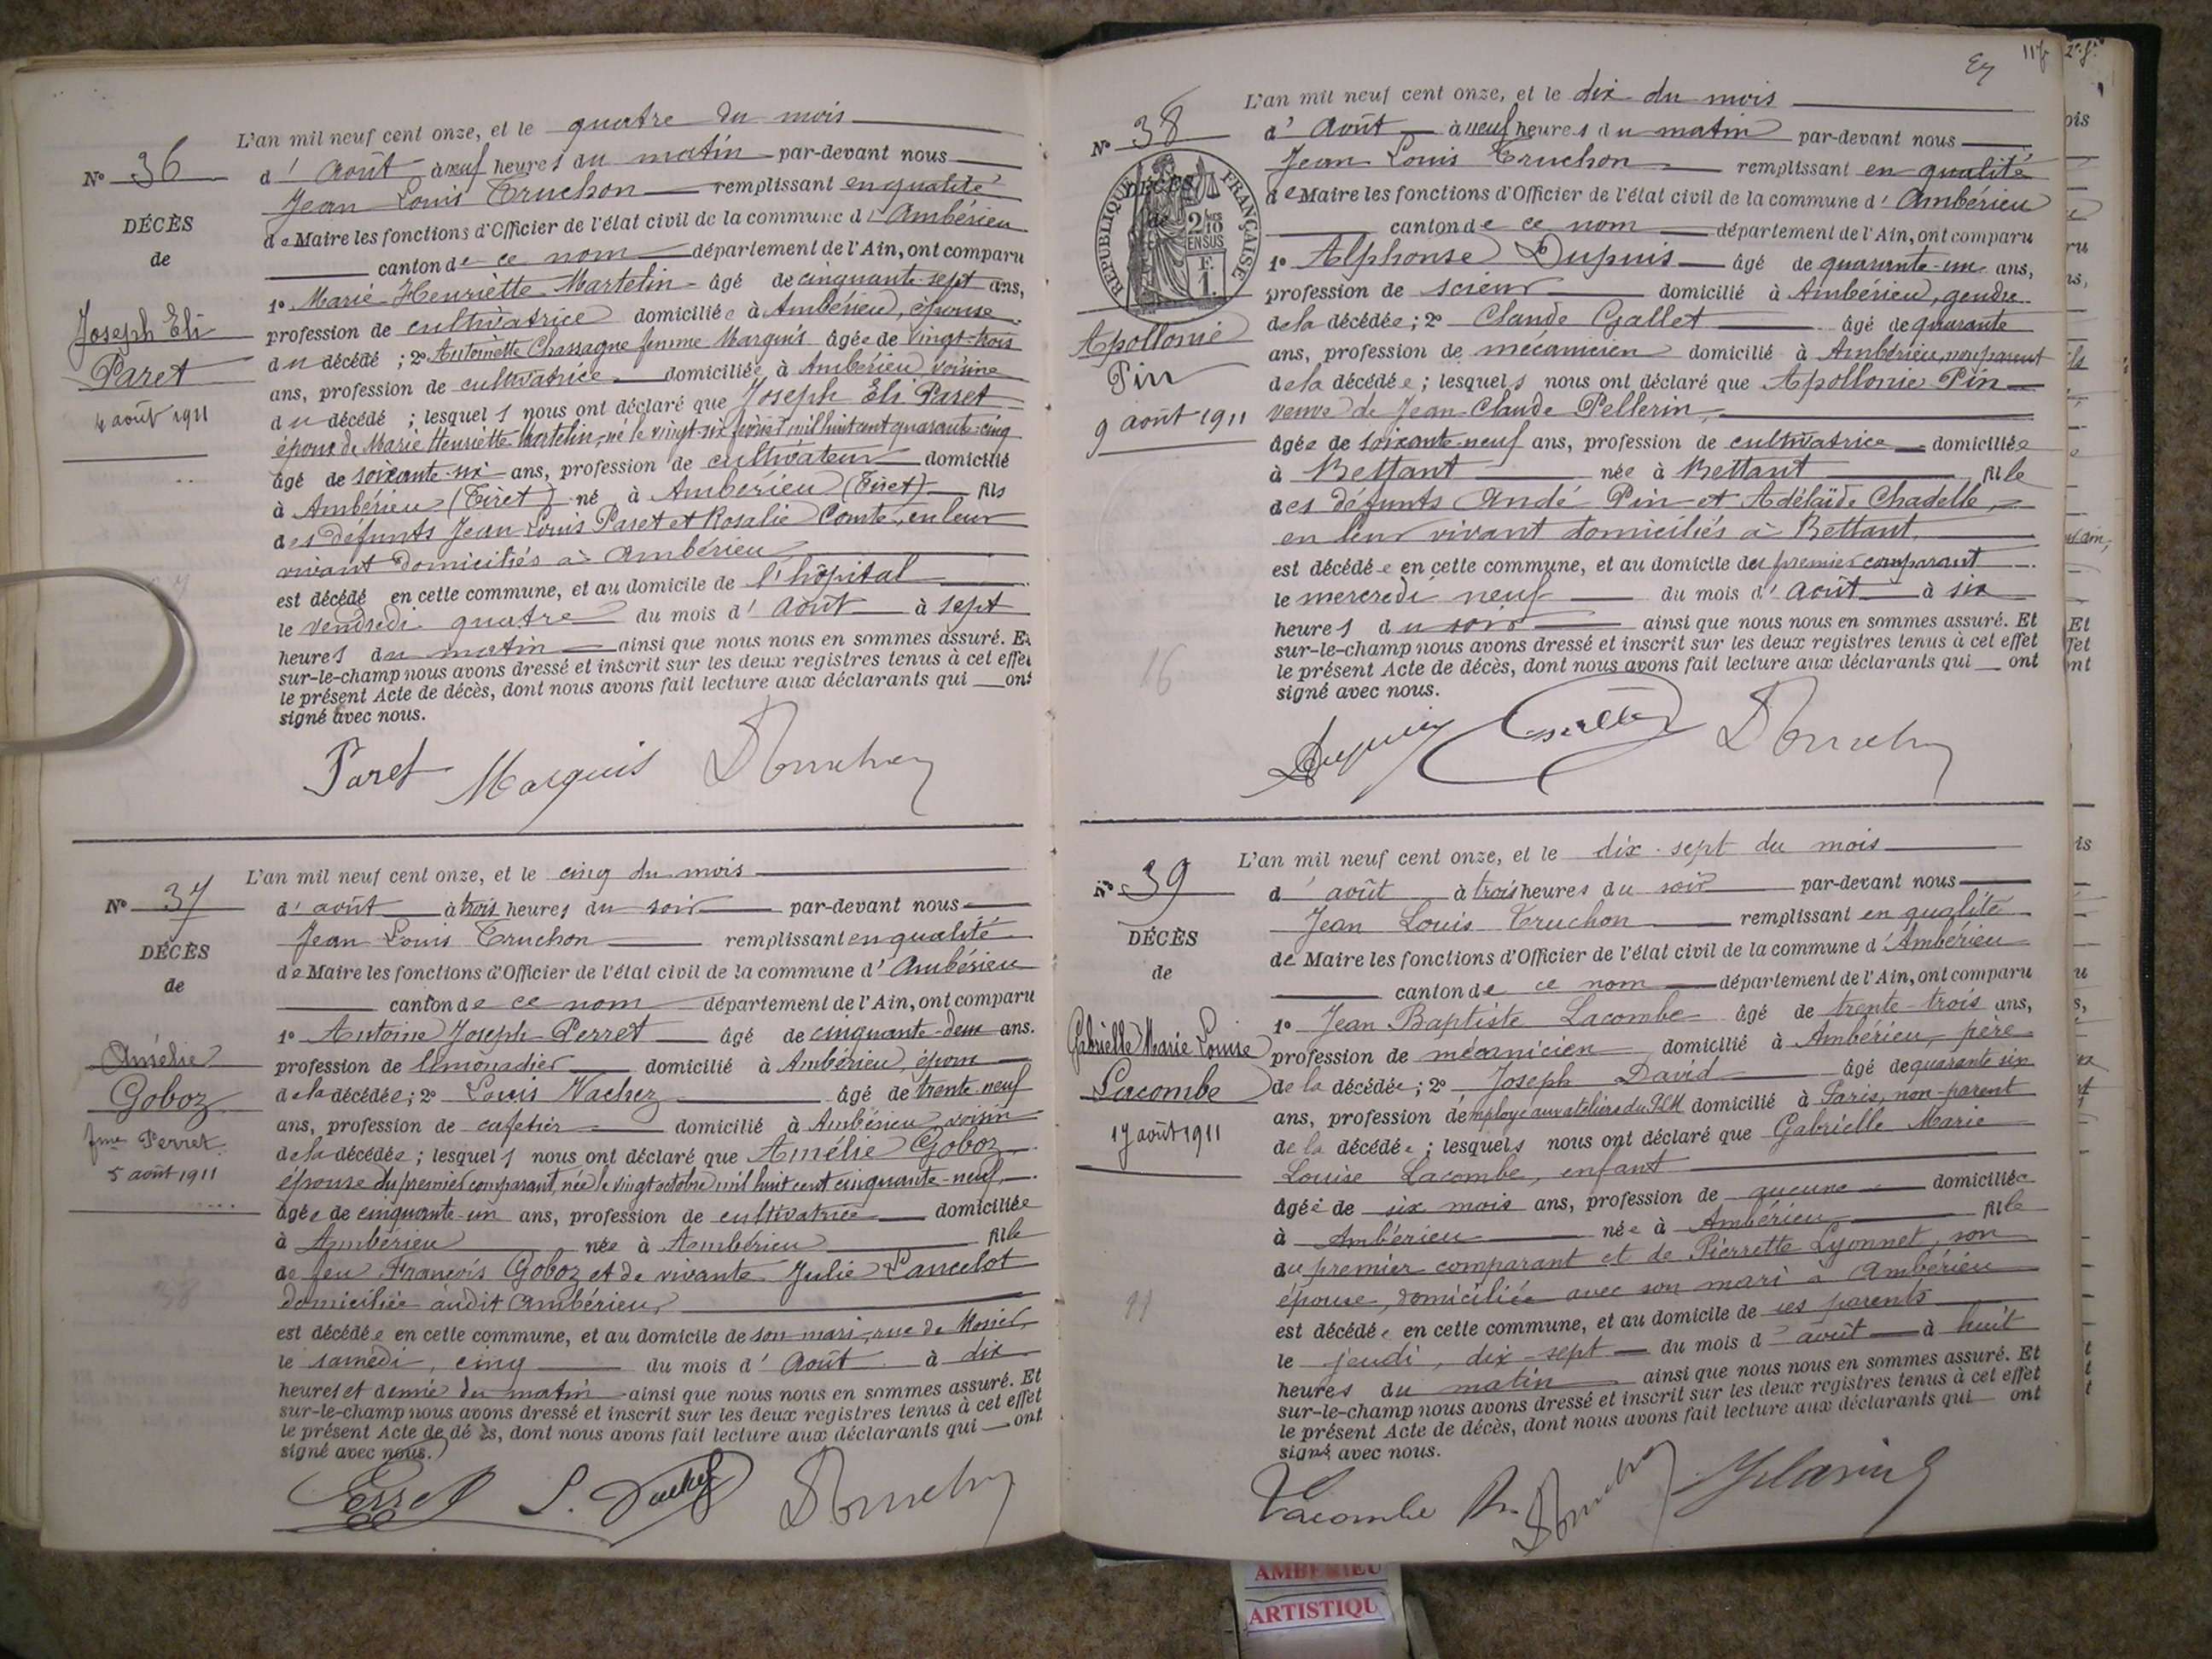 L'an mil neuf cent onze, et le quatre du mois
d'Août à neuf heures du matin par-devant nous
Jean Louis Truchon remplissant en qualité
de Maire les fonctions d'Officier de l'état civil de la commune d'Ambérieu
canton de ce nom département de l'Ain, ont comparu
1º Marie Henriette Martelin âgé de cinquante-sept ans,
profession de cultivatrice domiciliée à Ambérieu, épouse
du décédé ; 2º Antoinette Chassagne femme Marquis âgée de vingt-trois
ans, profession de cultivatrice domiciliée à Ambérieu voisine
du décédé ; lesquels nous ont déclaré que Joseph Eli Paret
époux de Marie Henriette Martelin, né le vingt-six mil huit cent quarante-cinq
âgé de soixante-six ans, profession de cultivateur domicilié
à Ambérieu (Tiret) né à Ambérieu (Tiret) fils
des défunts Jean Louis Paret et Rosalie Comte, en leur
vivant domiciliés à Ambérieu
est décédé en cette commune, et au domicile de l'hôpital
le vendredi quatre du mois d'Août à sept
heures du matin ainsi que nous nous en sommes assuré. Et
sur-le-champ nous avons dressé et inscrit sur les deux registres tenus à cet effet
le présent Acte de décès, dont nous avons fait lecture aux déclarants qui ont
signé avec nous.
Nº 36
DÉCÈS
de
Joseph Eli
Paret
4 août 1911
Paret Marquis Truchon
L'an mil neuf cent onze, et le cinq du mois
d'août à trois heures du soir par-devant nous
Jean Louis Truchon remplissant en qualité
de Maire les fonctions d'Officier de l'état civil de la commune d'Ambérieu
canton de ce nom département de l'Ain, ont comparu
1º Antoine Joseph Perret âgé de cinquante-deux ans.
profession de limonadier domicilié à Ambérieu, époux
de la décédée; 2º Louis Vachez âgé de trente-neuf
ans, profession de cafetier domicilié à Ambérieu, voisin
de la décédée ; lesquels nous ont déclaré que Amélie Goboz
épouse du premier comparant, née le vingt octobre mil huit cent cinquante-neuf,
âgée de cinquante-un ans, profession de cultivatrice domiciliée
à Ambérieu née à Ambérieu fille
de feu François Goboz et de vivante Julie Lancelot
domiciliée audit Ambérieu,
est décédée en cette commune, et au domicile de son mari, rue de
le samedi, cinq du mois d'Août à dix
heures et demie du matin ainsi que nous nous en sommes assuré. Et
sur-le-champ nous avons dressé et inscrit sur les deux registres tenus à cet effet
le présent Acte de décès, dont nous avons fait lecture aux déclarants qui ont
signé avec nous.
Nº 37
DÉCÈS
de
Amélie
Goboz
fme Perret
5 août 1911
Perret L. Vachez Truchon
L'an mil neuf cent onze, et le dix du mois
d'Août à neuf heures du matin par-devant nous
Jean Louis Truchon remplissant en qualité
de Maire les fonctions d'Officier de l'état civil de la commune d'Ambérieu
canton de ce nom département de l'Ain, ont comparu
1º Alphonse Dupuis âgé de quarante-un ans,
profession de scieur domicilié à Ambérieu, gendre
de la décédée ; 2º Claude Gallet âgé de quarante
ans, profession de mécanicien domicilié à Ambérieu, non parent
de la décédée ; lesquels nous ont déclaré que Apollonie Pin
veuve de Jean-Claude Pellerin,
âgée de soixante-neuf ans, profession de cultivatrice domiciliée
à Bettant née à Bettant fille
des défunts André Pin et Adélaïde Chadelle,
en leur vivant domiciliés à Bettant,
est décédée en cette commune, et au domicile du premier comparant
le mercredi neuf du mois d'Août à six
heures du soir ainsi que nous nous en sommes assuré. Et
sur-le-champ nous avons dressé et inscrit sur les deux registres tenus à cet effet
le présent Acte de décès, dont nous avons fait lecture aux déclarants qui ont
signé avec nous.
Nº 38
DÉCÈS
de
RÉPUBLIQUE FRANÇAISE
2/10
EN SUS
F.
1.
Apollonie
Pin
9 août 1911
16
Dupuis Gallet Truchon
L'an mil neuf cent onze, et le dix-sept du mois
d'août à trois heures du soir par-devant nous
Jean Louis Truchon remplissant en qualité
de Maire les fonctions d'Officier de l'état civil de la commune d'Ambérieu
canton de ce nom département de l'Ain, ont comparu
1º Jean Baptiste Lacombe âgé de trente-trois ans,
profession de mécanicien domicilié à Ambérieu, père
de la décédée ; 2º Joseph David âgé de quarante six
ans, profession d'employé aux ateliers du PLM domicilié à Paris, non-parent
de la décédée ; lesquels nous ont déclaré que Gabrielle Marie
Louise Lacombe, enfant
âgée de six mois ans, profession de aucune domiciliée
à Ambérieu née à Ambérieu fille
du premier comparant et de Pierrette Lyonnet, son
épouse, domiciliée avec son mari à Ambérieu
est décédée en cette commune, et au domicile de ses parents
le jeudi, dix-sept du mois d'août à huit
heures du matin ainsi que nous nous en sommes assuré. Et
sur-le-champ nous avons dressé et inscrit sur les deux registres tenus à cet effet
le présent Acte de décès, dont nous avons fait lecture aux déclarants qui ont
signé avec nous.
Nº 39
DÉCÈS
de
Gabrielle Marie Louise
Lacombe
17 août 1911
Lacombe Truchon
AMBERIEU
ARTISTIQU